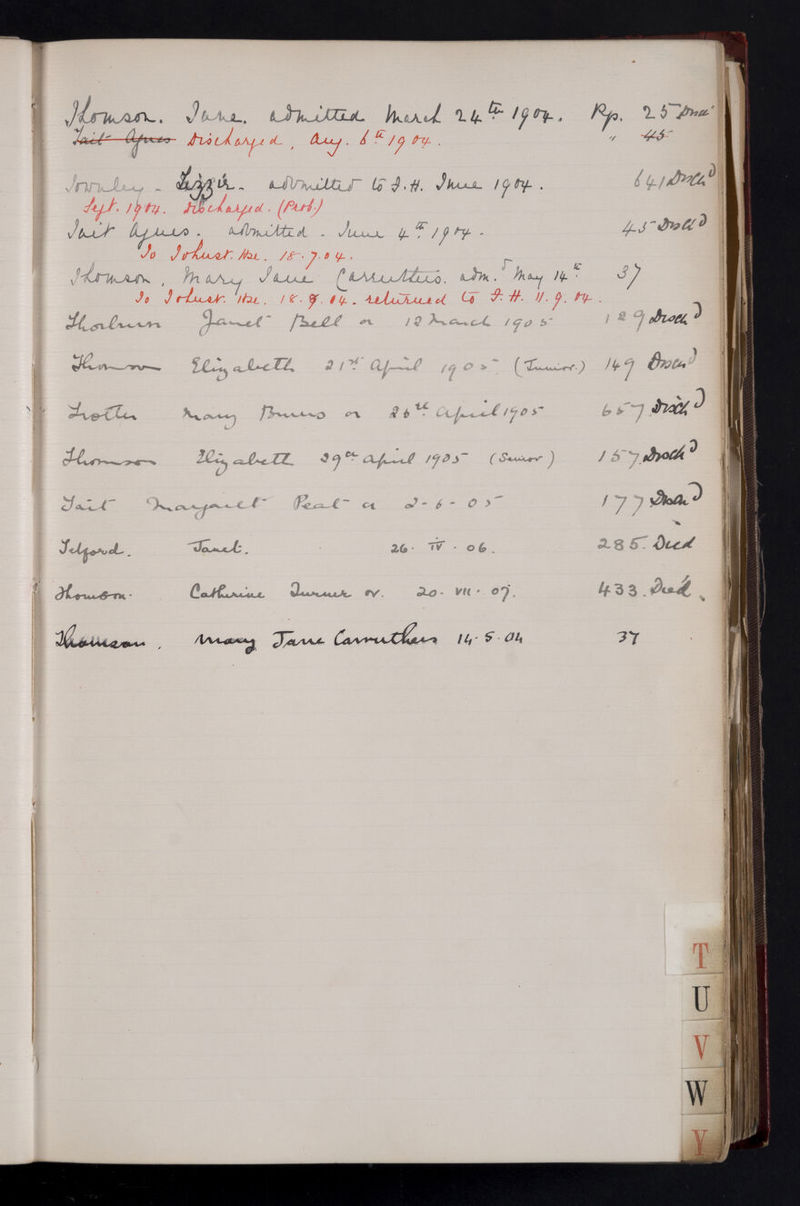 Thomson. Jane. admitted March 24th 1904. Rp. 25 Disch
Tait Agnes Discharged, Aug. 6th 1904. " 45
Townley - Lizzie. admitted to I.H. June 1904. 641 Disch'd
Sept. 1904. Discharged. (Prob.)
Tait Agnes. admitted - June 4th 1904 - 45 Disch'd
To Johnst. Hse. 18.7.04.
Thomson, Mary Jane Carruthers. adm. May 14th 37
To Johnst. Hse. 18.7.04. returned to I.H. 11.9.04.
Thorburn Janet Bell or 12 March 1905 129 Disch'd
Thomson Elizabeth 21st April 1905 (Junior) 149 Disch'd
Trotter Mary Burns or 26th April 1905 657 Disch'd
Thomson Elizabeth 29th April 1905 (Senior) 157 Disch'd
Tait Margaret Peat or 2-6-05 177 Disch'd
Telford. Janet. 26. IV. 06. 285. Died
Thomson. Catherine Turner or. 20. VII. 07. 433. Died.
Thomson. Mary Jane Carruthers 14.5.04 37
T
U
V
W
Y